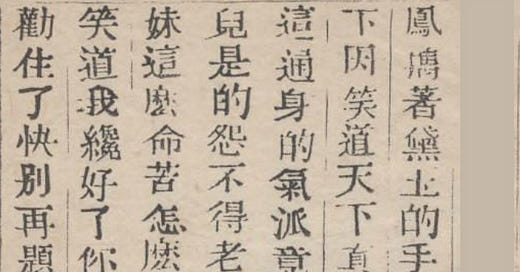 鳳攜著黛玉的手
下因笑道天下真
這通身的氣派竟
兒是的怨不得老
妹這麽命苦怎麽
笑道我纔好了你
勸住了快别再題